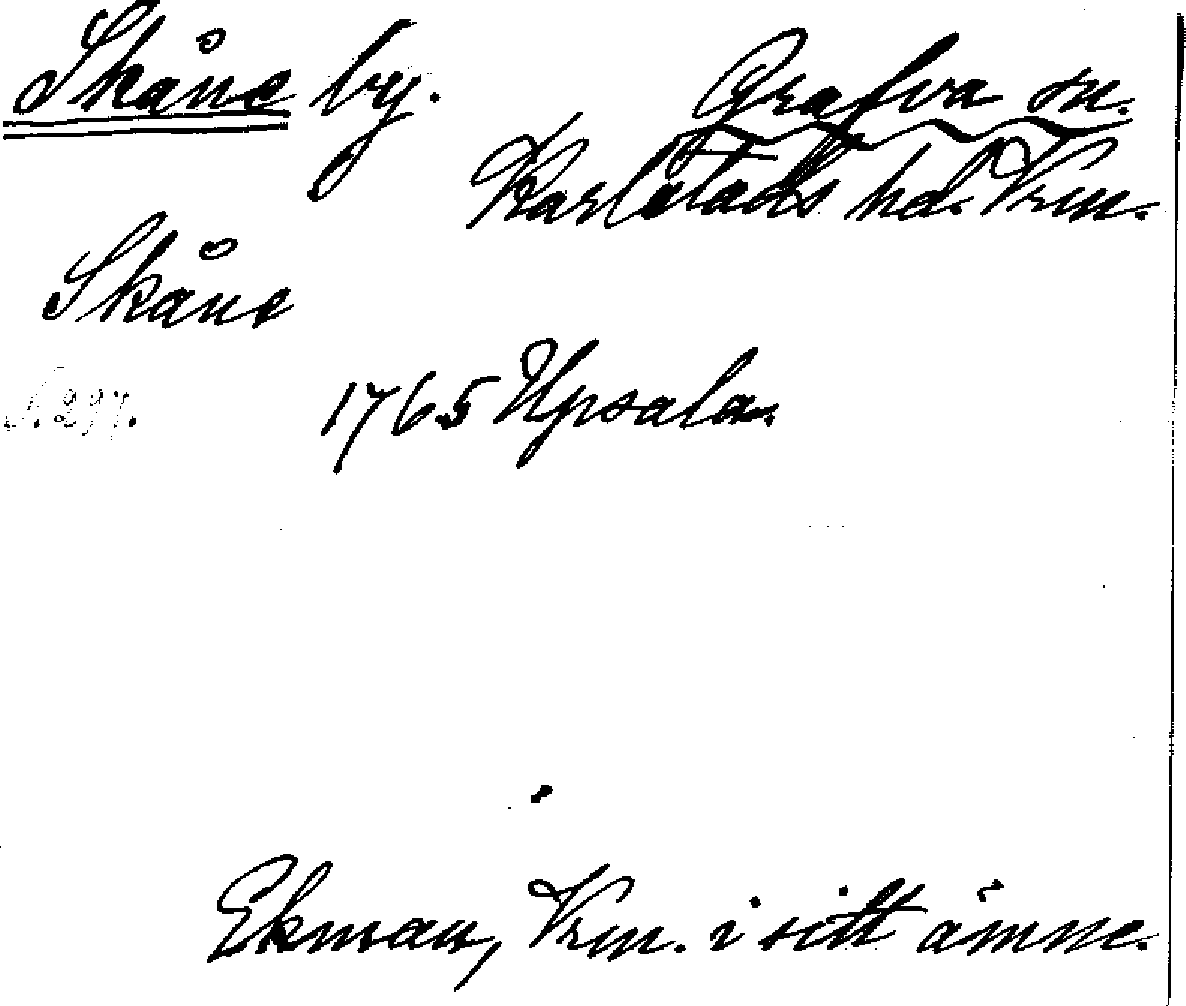 Skåne by. Grafva sn.
Karlstads hd. Vrm.
Skåne
S. 297. 1765 Upsala.
Ekman, Vrm. i sitt ämne.